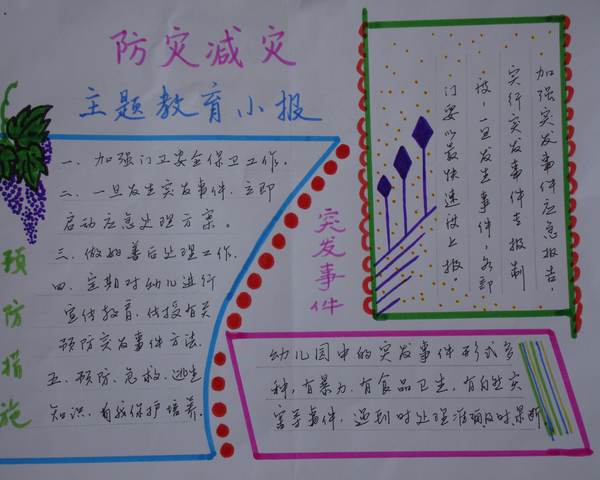 防灾减灾
主题教育小报
预防措施
一、加强门卫安全保卫工作。
二、一旦发生突发事件、立即
启动应急处理方案。
三、做好善后处理工作.
四、定期对幼儿进行
宣传教育,传授有关
预防突发事件方法.
五、预防、急救、逃生
知识、自我保护培养.
突发事件
加强突发事件应急报告,
实行突发事件专报制
度,一旦发生事件,各部
门要以最快速度上报.
幼儿园中的突发事件形式多
种,有暴力,有食品卫生,有自然灾
害等事件,遇到时处理准确及时果断.